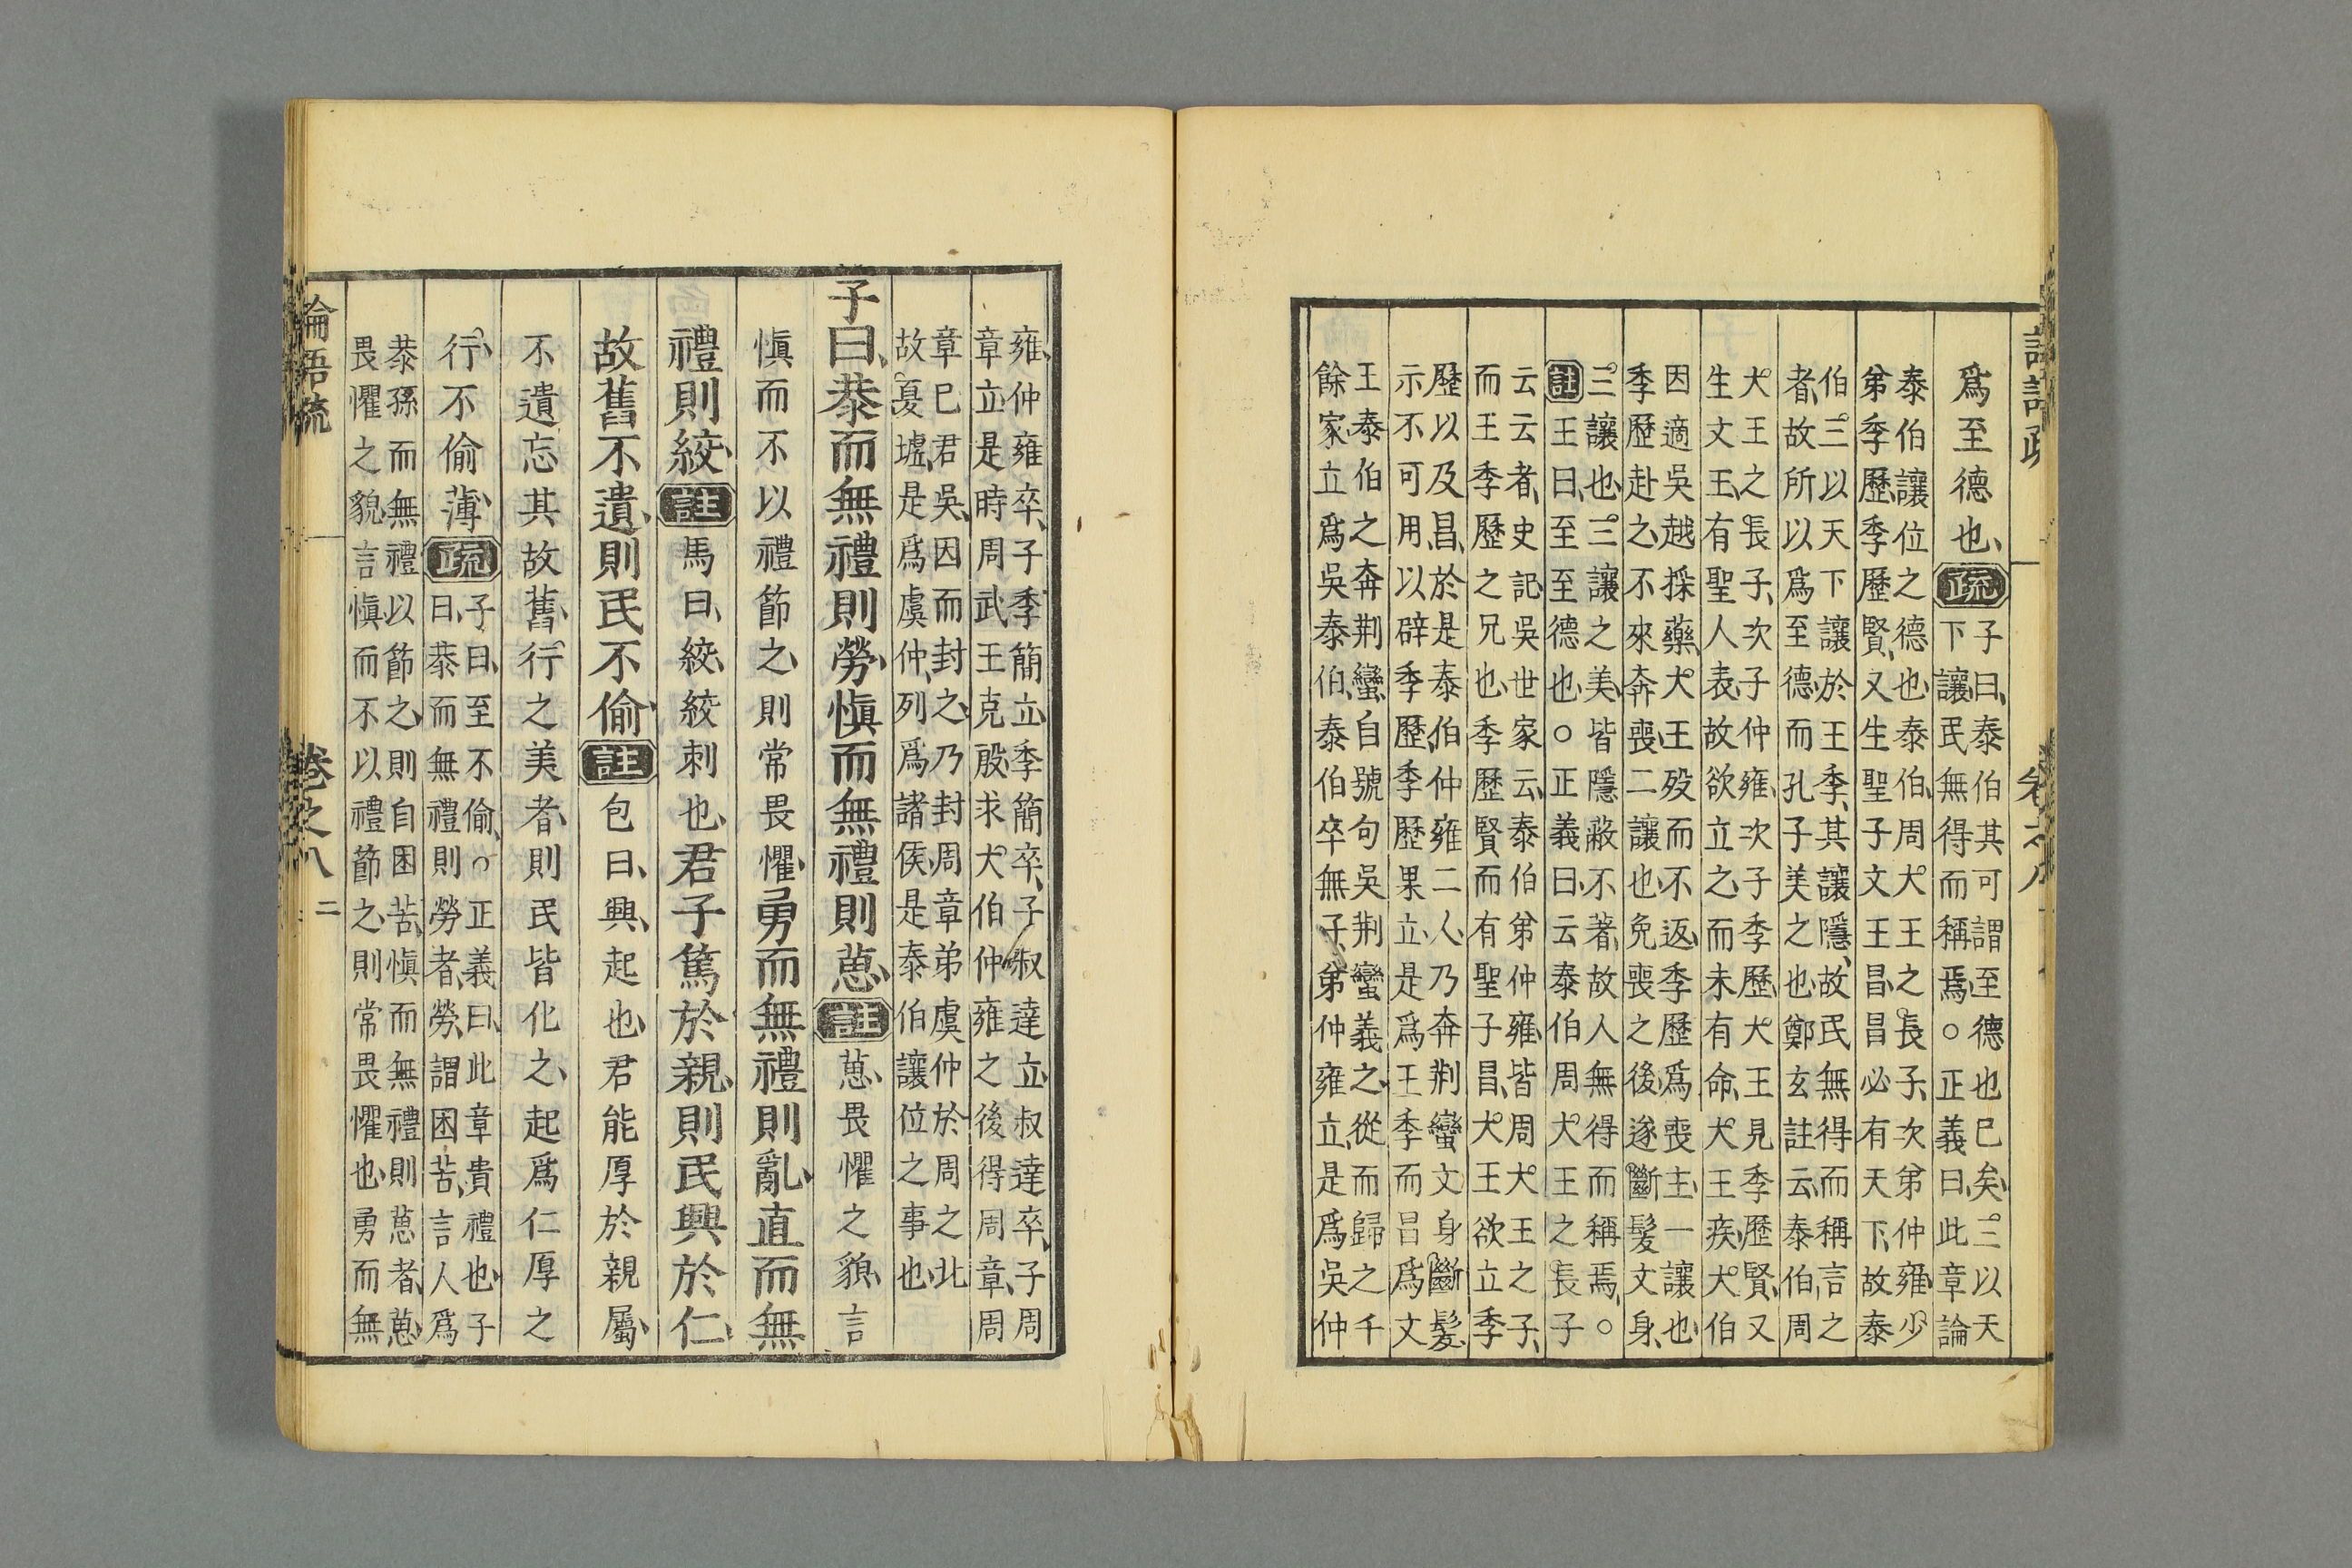 爲至德也疏
子曰泰伯其可謂至德也已矣三以天
下讓民無得而稱焉○正義曰此章論
泰伯讓位之德也泰伯周大王之長子次弟仲雍少
弟季歷季歷賢又生聖子文王昌昌必有天下故泰
伯三以天下讓於王季其讓隱故民無得而稱言之
者故所以爲至德而孔子美之也鄭玄註云泰伯周
大王之長子次子仲雍次子季歷大王見季歷賢又
生文王王有聖人表故欲立之而未有命大王疾大伯
因適吳越採藥大王歿而不返季歷爲喪主一讓也
季歷赴之不來奔喪二讓也免喪之後遂斷髮文身
三讓也三讓之美皆隱蔽不著故人無得而稱焉○
註王曰至至德也○正義曰云泰伯周大王之長子
云云者史記吳世家云泰伯弟仲雍皆周大王之子
而王季歷之兄也季歷賢而有聖子昌大王欲立季
歷以及昌於是泰伯仲雍二人乃奔荆蠻文身斷髮
示不可用以辟季歷季歷果立是爲王季而昌爲文
王泰伯之奔荆蠻自號句吳荆蠻義之從而歸之千
餘家立爲吳泰伯泰伯卒無子弟仲雍立是爲吳仲
雍仲雍卒子季簡立季簡卒子叔達立叔達卒子周
章立是時周武王克殷求大伯仲雍之後得周章周
章已君吳因而封之乃封周章弟虞仲於周之北
故夏墟是爲虞仲列爲諸侯是泰伯讓位之事也
子曰恭而無禮則勞愼而無禮則葸註葸畏懼之貌言
愼而不以禮節之則常畏懼勇而無禮則亂直而無
禮則絞註馬曰絞絞刺也君子篤於親則民興於仁
故舊不遺則民不偷註包曰興起也君能厚於親屬
不遺忘其故舊行之美者則民皆化之起爲仁厚之
行不偷薄疏
子曰至不偷○正義曰此章貴禮也子
曰恭而無禮則勞者勞謂困苦言人爲
恭孫而無禮以節之則自困苦愼而無禮則葸者葸
畏懼之貌言愼而不以禮節之則常畏懼也勇而無
論語疏
卷之八
二